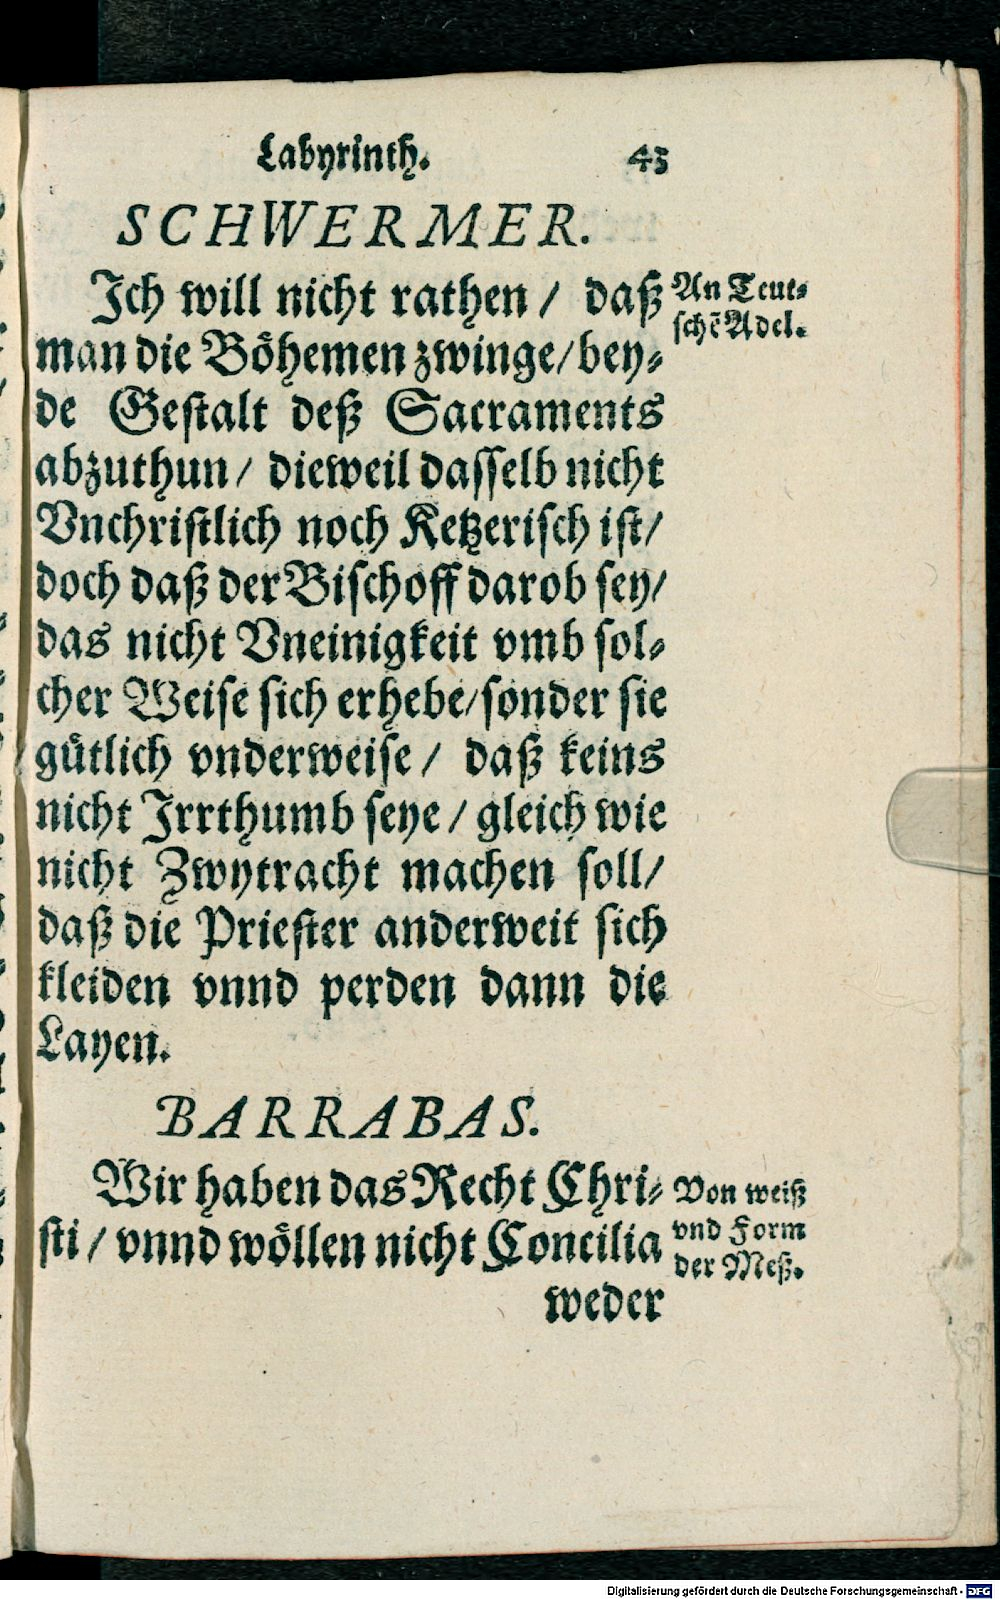 Labyrinth. 43
SCHWERMER.
Ich will nicht rathen / daß
An Teut-
schē Adel.
man die Böhemen zwinge/ bey-
de Gestalt deß Sacraments
abzuthun / dieweil dasselb nicht
Vnchristlich noch Ketzerisch ist/
doch daß der Bischoff darob sey/
das nicht Vneinigkeit vmb sol-
cher Weise sich erhebe/sonder sie
gütlich vnderweise / daß keins
nicht Irrthumb seye / gleich wie
nicht Zwytracht machen soll/
daß die Priester anderweit sich
kleiden vnnd perden dann die
Layen.
BARRABAS.
Wir haben das Recht Chri-
sti / vnnd wöllen nicht Concilia
Von weiß
vnd Form
der Meß.
weder
Digitalisierung gefördert durch die Deutsche Forschungsgemeinschaft - DFG